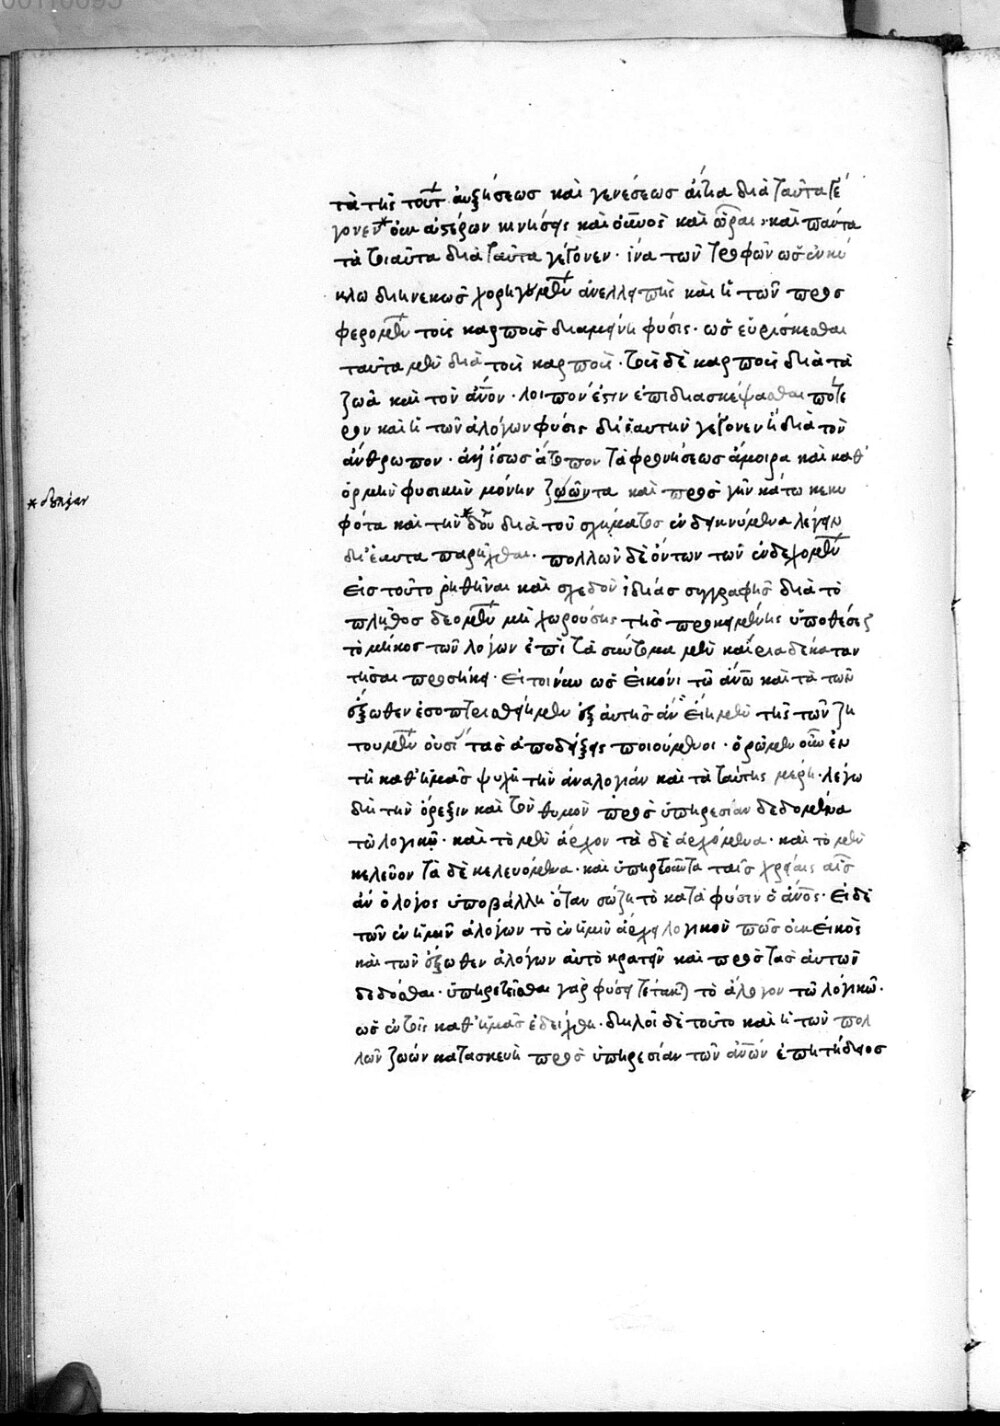 τὰ τῆς τούτ αὐξήσεως καὶ γενέσεως αἴτια διὰ ταῦτα γέ
γονεν οἷον ἀστέρων κινήσεις καὶ οὐνος καὶ ὧραι · καὶ πάντα
τὰ τοιαῦτα διὰ ταῦτα γέγονεν · ἵνα τῶν τροφῶν ὡς ἐν κύ
κλω διηνεκῶς χορηγουμεν ἀνελλιπὴς καὶ ἡ τῶν προσ
φερομεν τοὺς καρποὺς διαμείνη φύσις · ὡς εὑρίσκεσθαι
ταῦτα μὲν διὰ τοὺς καρποὺς · τοὺς δὲ καρποὺς διὰ τὰ
ζῶα καὶ τὸν ἄνον · λοιπόν ἐστιν ἐπιδιασκέψασθαι πότε
ρον καὶ ἡ τῶν ἀλόγων φύσις δι' ἑαυτὴν γέγονεν ἢ διὰ τὸν
ἄνθρωπον · ἀλλ' ἴσως ἄτοπον τὰ φρονήσεως ἄμοιρα καὶ καθ'
ὁρμὴν φυσικὴν μόνην ζῶντα καὶ πρὸς γῆν κάτω κεκυ
* δουλείαν
φότα καὶ τὴν * διὰ τοῦ σχήματος ἐνδεικνύμενα λέγειν
δι' ἑαυτὰ παρῆχθαι · πολλῶν δὲ ὄντων τῶν ἐνδεχομεν
εἰς τοῦτο ῥηθῆναι καὶ σχεδὸν ἰδίας συγγραφῆς διὰ τὸ
πλῆθος δεομεν μὴ χωρούσης τῆς προκειμένης ὑποθέσεως
τὸ μῆκος τῶν λόγων ἐπὶ τὰ σύντομα μὲν καίρια δὲ καταν
τῆσαι προσήκει · εἰ τοίνυν ὡς εἰκόνι τῶ ἀνω καὶ τὰ τῶν
ἔξωθεν ἐσοπτρισθείημεν ἐξ αὐτῆς ἂν εἴημεν τῆς τῶν ζη
τουμεν οὐσί τὰς ἀποδείξεις ποιούμενοι · ὁρῶμεν οὖν ἐν
τῆ καθ' ἡμᾶς ψυχῆ τὴν ἀναλογίαν καὶ τὰ ταύτης μέρη · λέγω
δὴ τὴν ὄρεξιν καὶ τὸν θυμὸν πρὸς ὑπηρεσίαν δεδομένα
τῶ λογικῶ · καὶ τὸ μὲν ἄρχον τὰ δὲ ἀρχόμενα · καὶ τὸ μὲν
κελεῦον τὰ δὲ κελευόμενα · καὶ ὑπηρετοῦντα ταῖς χρείαις αἷς
ἂν ὁ λόγος ὑποβάλλη ὅταν σώζη τὸ κατὰ φύσιν ὁ ἄνος · εἰ δὲ
τῶν ἐν ἡμῖν ἀλόγων τὸ ἐν ἡμῖν ἄρχει λογικὸν πῶς οὐκ εἰκὸς
καὶ τῶν ἔξωθεν ἀλόγων αὐτὸ κρατεῖν καὶ πρὸς τὰς αὐτῶν
δεδόσθαι · ὑπηρετεῖσθαι γὰρ φύσει τέτακ) τὸ ἄλογον τῶ λογικῶ ·
ὡς ἐν τοῖς καθ' ἡμᾶς ἐδείχθη · δηλοῖ δὲ τοῦτο καὶ ἡ τῶν πολ
λῶν ζώων κατασκευὴ πρὸς ὑπηρεσίαν τῶν ἀνῶν ἐπιτήδειος